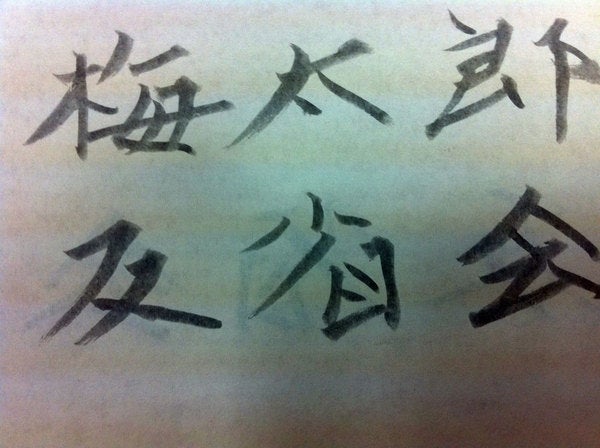 梅太郎
反省会